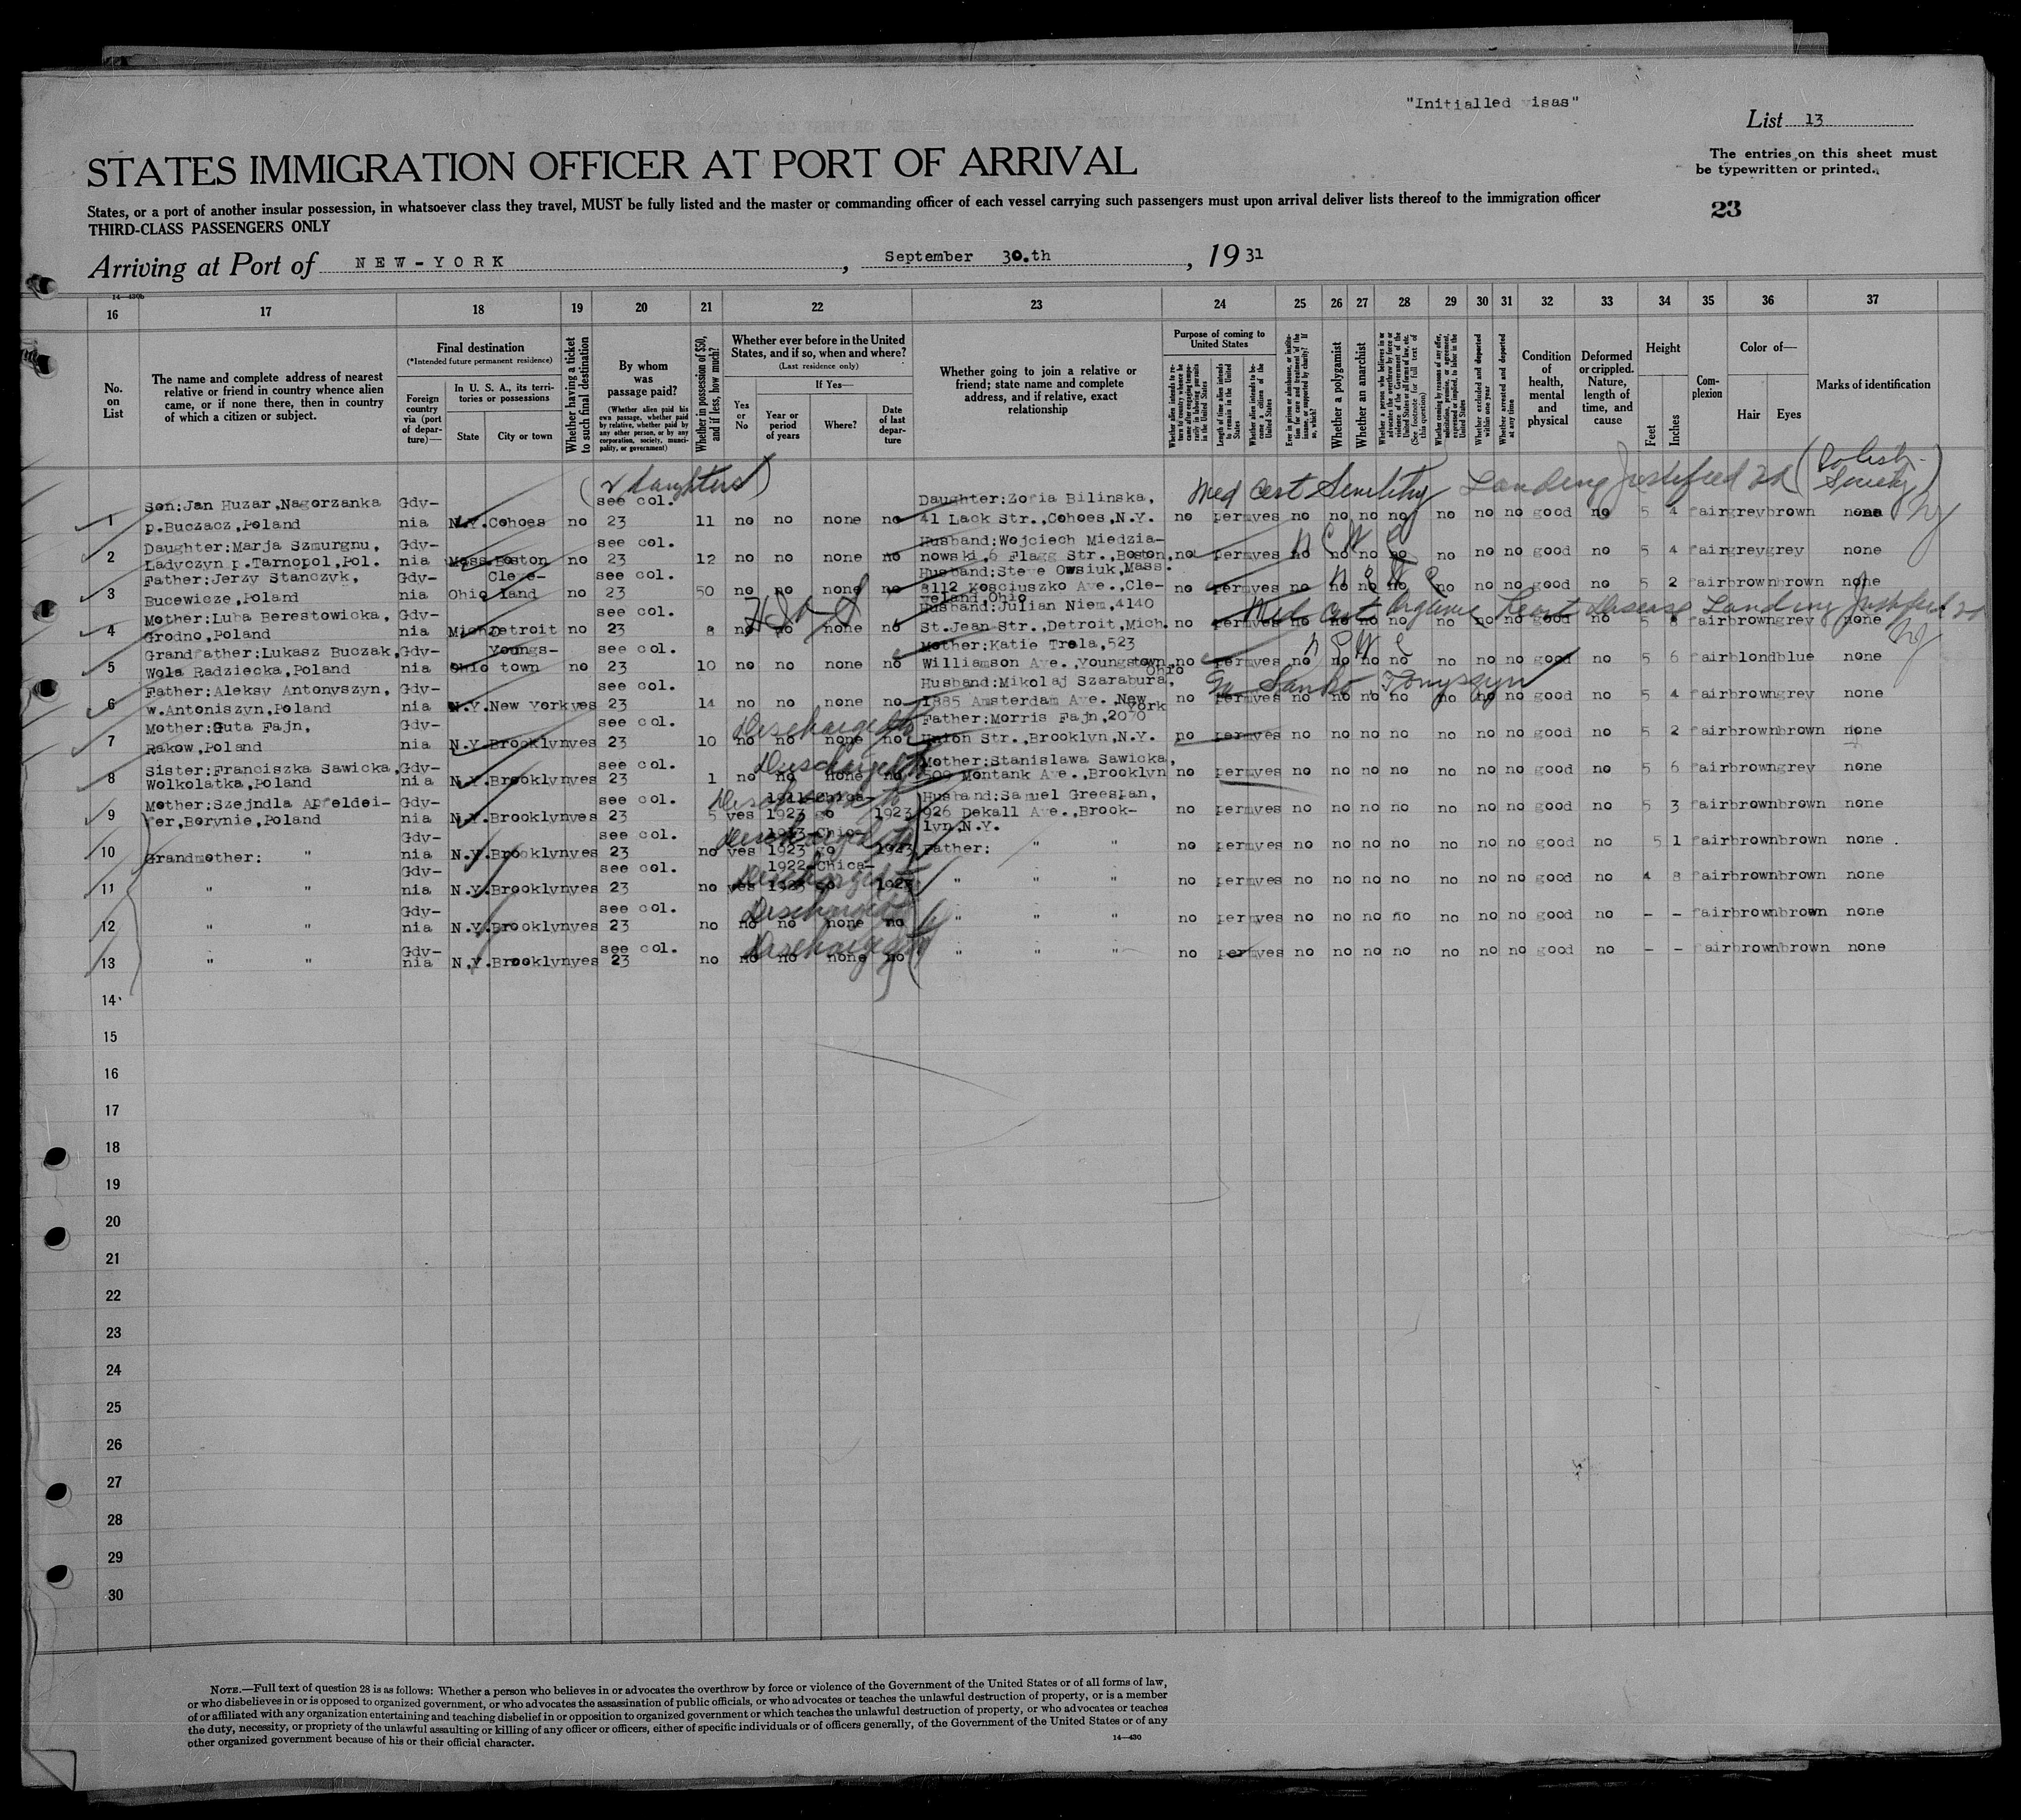 "Initialled visas"
List 13
STATES IMMIGRATION OFFICER AT PORT OF ARRIVAL
The entries on this sheet must
be typewritten or printed.
States, or a port of another insular possession, in whatsoever class they travel, MUST be fully listed and the master or commanding officer of each vessel carrying such passengers must upon arrival deliver lists thereof to the immigration officer
THIRD-CLASS PASSENGERS ONLY
23
Arriving at Port of NEW-YORK, September 30.th, 1931
14—430b
16 17 18 19 20 21 22 23 24 25 26 27 28 29 30 31 32 33 34 35 36 37
No. on List
The name and complete address of nearest relative or friend in country whence alien came, or if none there, then in country of which a citizen or subject.
Final destination
(*Intended future permanent residence)
Foreign country via (port of departure)—
In U. S. A., its territories or possessions
State
City or town
Whether having a ticket to such final destination
By whom was passage paid?
(Whether alien paid his own passage, whether paid by relative, whether paid by any other person, or by any corporation, society, municipality, or government)
Whether in possession of $50, and if less, how much?
Whether ever before in the United States, and if so, when and where?
(Last residence only)
Yes or No
If Yes—
Year or period of years
Where?
Date of last departure
Whether going to join a relative or friend; state name and complete address, and if relative, exact relationship
Purpose of coming to United States
Length of time alien intends to remain in the United States
Whether alien intends to become a citizen of the United States
Whether a polygamist
Whether an anarchist
Whether excluded and deported within one year
Whether arrested and deported at any time
Condition of health, mental and physical
Deformed or crippled. Nature, length of time, and cause
Height
Feet
Inches
Complexion
Color of—
Hair
Eyes
Marks of identification
(2 daughters)
Med Cert Senility Landing Justified 2d (Polish Society)
1 Son:Jan Huzar,Nagorzanka p.Buczacz,Poland Gdynia N.Y. Cohoes no see col. 23 11 no no none no Daughter:Zofia Bilinska, 41 Lack Str.,Cohoes,N.Y. no perm yes no no no no no no no good no 5 4 fair grey brown none
2 Daughter:Marja Szmurgnu, Ladyczyn p.Tarnopol,Pol. Gdynia Mass. Boston no see col. 23 12 no no none no Husband:Wojciech Miedzianowski,6 Flagg Str.,Boston, Mass. no perm yes no no no no no no no good no 5 4 fair grey grey none
3 Father:Jerzy Stanczyk, Bucewicze,Poland Gdynia Ohio Cleveland no see col. 23 50 no no none no Husband:Steve Owsiuk, 8112 Kosciuszko Ave.,Cleveland,Ohio no perm yes no no no no no no no good no 5 2 fair brown brown none
Med Cert Organic Heart Disease Landing Justified 2d
4 Mother:Luba Berestowicka, Grodno,Poland Gdynia Mich. Detroit no see col. 23 8 no no none no Husband:Julian Niem,4140 St.Jean Str.,Detroit,Mich. no perm yes no no no no no no no good no 5 8 fair brown grey none
5 Grandfather:Lukasz Buczak, Wola Radziecka,Poland Gdynia Ohio Youngstown no see col. 23 10 no no none no Mother:Katie Trela,523 Williamson Ave.,Youngstown, Ohio no perm yes no no no no no no no good no 5 6 fair blond blue none
6 Father:Aleksy Antonyszyn, w.Antoniszyn,Poland Gdynia N.Y. New York yes see col. 23 14 no no none no Husband:Mikolaj Szarabura, 1885 Amsterdam Ave. New York no perm yes no no no no no no no good no 5 4 fair brown grey none
7 Mother:Guta Fajn, Rakow,Poland Gdynia N.Y. Brooklyn yes see col. 23 10 no no none no Father:Morris Fajn,2070 Union Str.,Brooklyn,N.Y. no perm yes no no no no no no no good no 5 2 fair brown brown none
8 Sister:Franciszka Sawicka, Wolkolatka,Poland Gdynia N.Y. Brooklyn yes see col. 23 1 no no none no Mother:Stanislawa Sawicka, 509 Montank Ave.,Brooklyn no perm yes no no no no no no no good no 5 6 fair brown grey none
9 Mother:Szejndla Apfeldeifer,Borynie,Poland Gdynia N.Y. Brooklyn yes see col. 23 5 yes 1923 Chicago 1923 Husband:Samuel Greespan, 926 Dekall Ave.,Brooklyn,N.Y. no perm yes no no no no no no no good no 5 3 fair brown brown none
10 Grandmother: " Gdynia N.Y. Brooklyn yes see col. 23 no yes 1923 Chicago 1923 Father: " " no perm yes no no no no no no no good no 5 1 fair brown brown none
11 " " Gdynia N.Y. Brooklyn yes see col. 23 no yes 1922 1923 Chicago 1923 " " " no perm yes no no no no no no no good no 4 8 fair brown brown none
12 " " Gdynia N.Y. Brooklyn yes see col. 23 no no no none no " " " no perm yes no no no no no no no good no - - fair brown brown none
13 " " Gdynia N.Y. Brooklyn yes see col. 23 no no no none no " " " no perm yes no no no no no no no good no - - fair brown brown none
14
15
16
17
18
19
20
21
22
23
24
25
26
27
28
29
30
NOTE.—Full text of question 28 is as follows: Whether a person who believes in or advocates the overthrow by force or violence of the Government of the United States or of all forms of law,
or who disbelieves in or is opposed to organized government, or who advocates the assassination of public officials, or who advocates or teaches the unlawful destruction of property, or is a member
of or affiliated with any organization entertaining and teaching disbelief in or opposition to organized government or which teaches the unlawful destruction of property, or who advocates or teaches
the duty, necessity, or propriety of the unlawful assaulting or killing of any officer or officers, either of specific individuals or of officers generally, of the Government of the United States or of any
other organized government because of his or their official character.
14—430